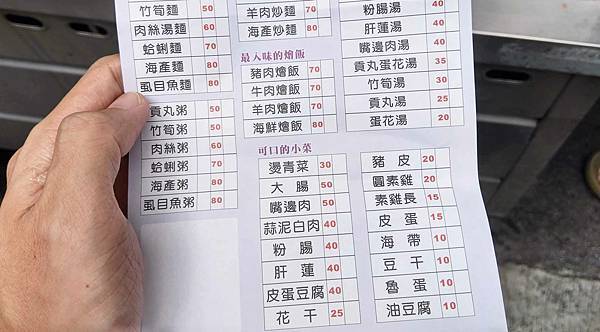 竹筍麵 50
肉絲湯麵 60
蛤蜊麵 70
海產麵 80
虱目魚麵 80
貢丸粥 50
竹筍粥 50
肉絲粥 60
蛤蜊粥 70
海產粥 80
虱目魚粥 80
羊肉炒麵 70
海產炒麵 80
最入味的燴飯
豬肉燴飯 70
牛肉燴飯 70
羊肉燴飯 70
海鮮燴飯 80
粉腸湯 40
肝蓮湯 40
嘴邊肉湯 40
貢丸蛋花湯 35
竹筍湯 30
貢丸湯 25
蛋花湯 20
可口的小菜
燙青菜 30
大腸 50
嘴邊肉 50
蒜泥白肉 40
粉腸 40
肝蓮 40
皮蛋豆腐 40
花干 25
豬皮 20
圓素雞 20
素雞長 15
皮蛋 15
海帶 10
豆干 10
魯蛋 10
油豆腐 10